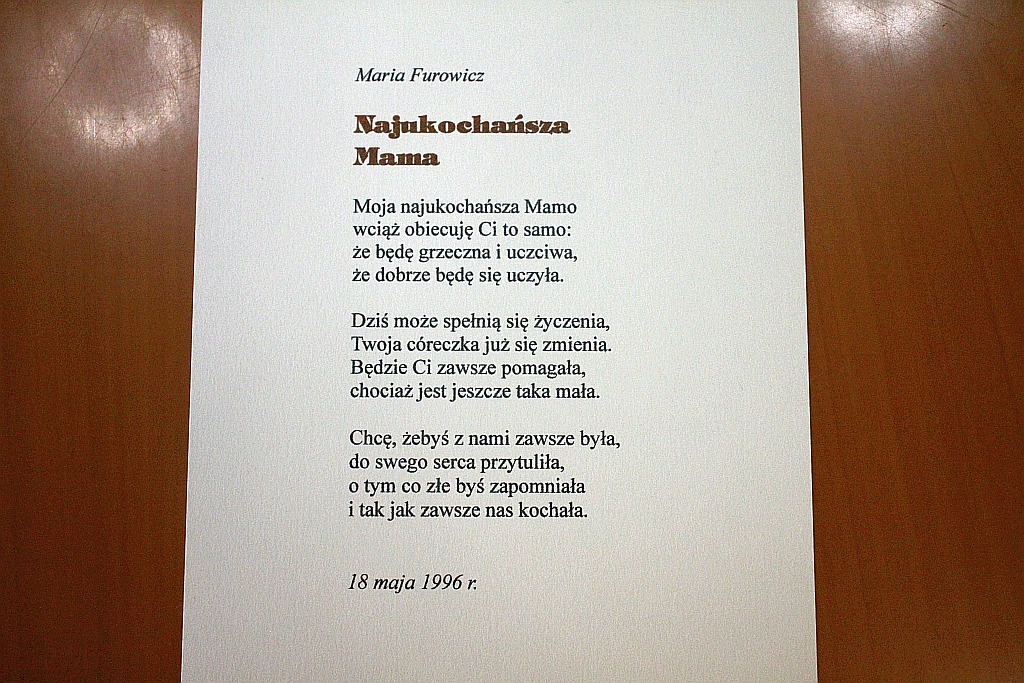 Maria Furowicz
Najukochańsza
Mama
Moja najukochańsza Mamo
wciąż obiecuję Ci to samo:
że będę grzeczna i uczciwa,
że dobrze będę się uczyła.
Dziś może spełnią się życzenia,
Twoja córeczka już się zmienia.
Będzie Ci zawsze pomagała,
chociaż jest jeszcze taka mała.
Chcę, żebyś z nami zawsze była,
do swego serca przytuliła,
o tym co złe byś zapomniała
i tak jak zawsze nas kochała.
18 maja 1996 r.